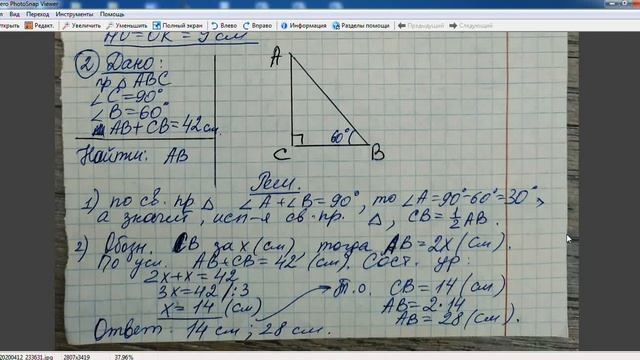 ero PhotoSnap Viewer
ткрыть
Переход
Инструменты
Помощь
Увеличить
Уменьшить
Полный экран
Влево
Вправо
Информация
Разделы помощи
Предыдущий
Следующий
HO = OK = 9 см
2 Дано:
пр △ ABC
∠C=90°
∠B=60°
AB+CB=42 см.
Найти: AB
A
60°
C
B
Реш.
1) по св. пр △ ∠A+∠B=90°, то ∠A=90°-60°=30°,
а значит, исп-я св. пр. △, CB=½AB.
2) Обозн. CB за x (см), тогда AB=2x (см).
По усл. AB+CB=42 (см). Сост. ур:
2x+x=42
3x=42 /:3
x=14 (см)
Т.о. CB=14 (см)
AB=2·14
AB=28 (см).
Ответ: 14 см; 28 см.
20200412_233631.jpg
2807x3419
37.96%